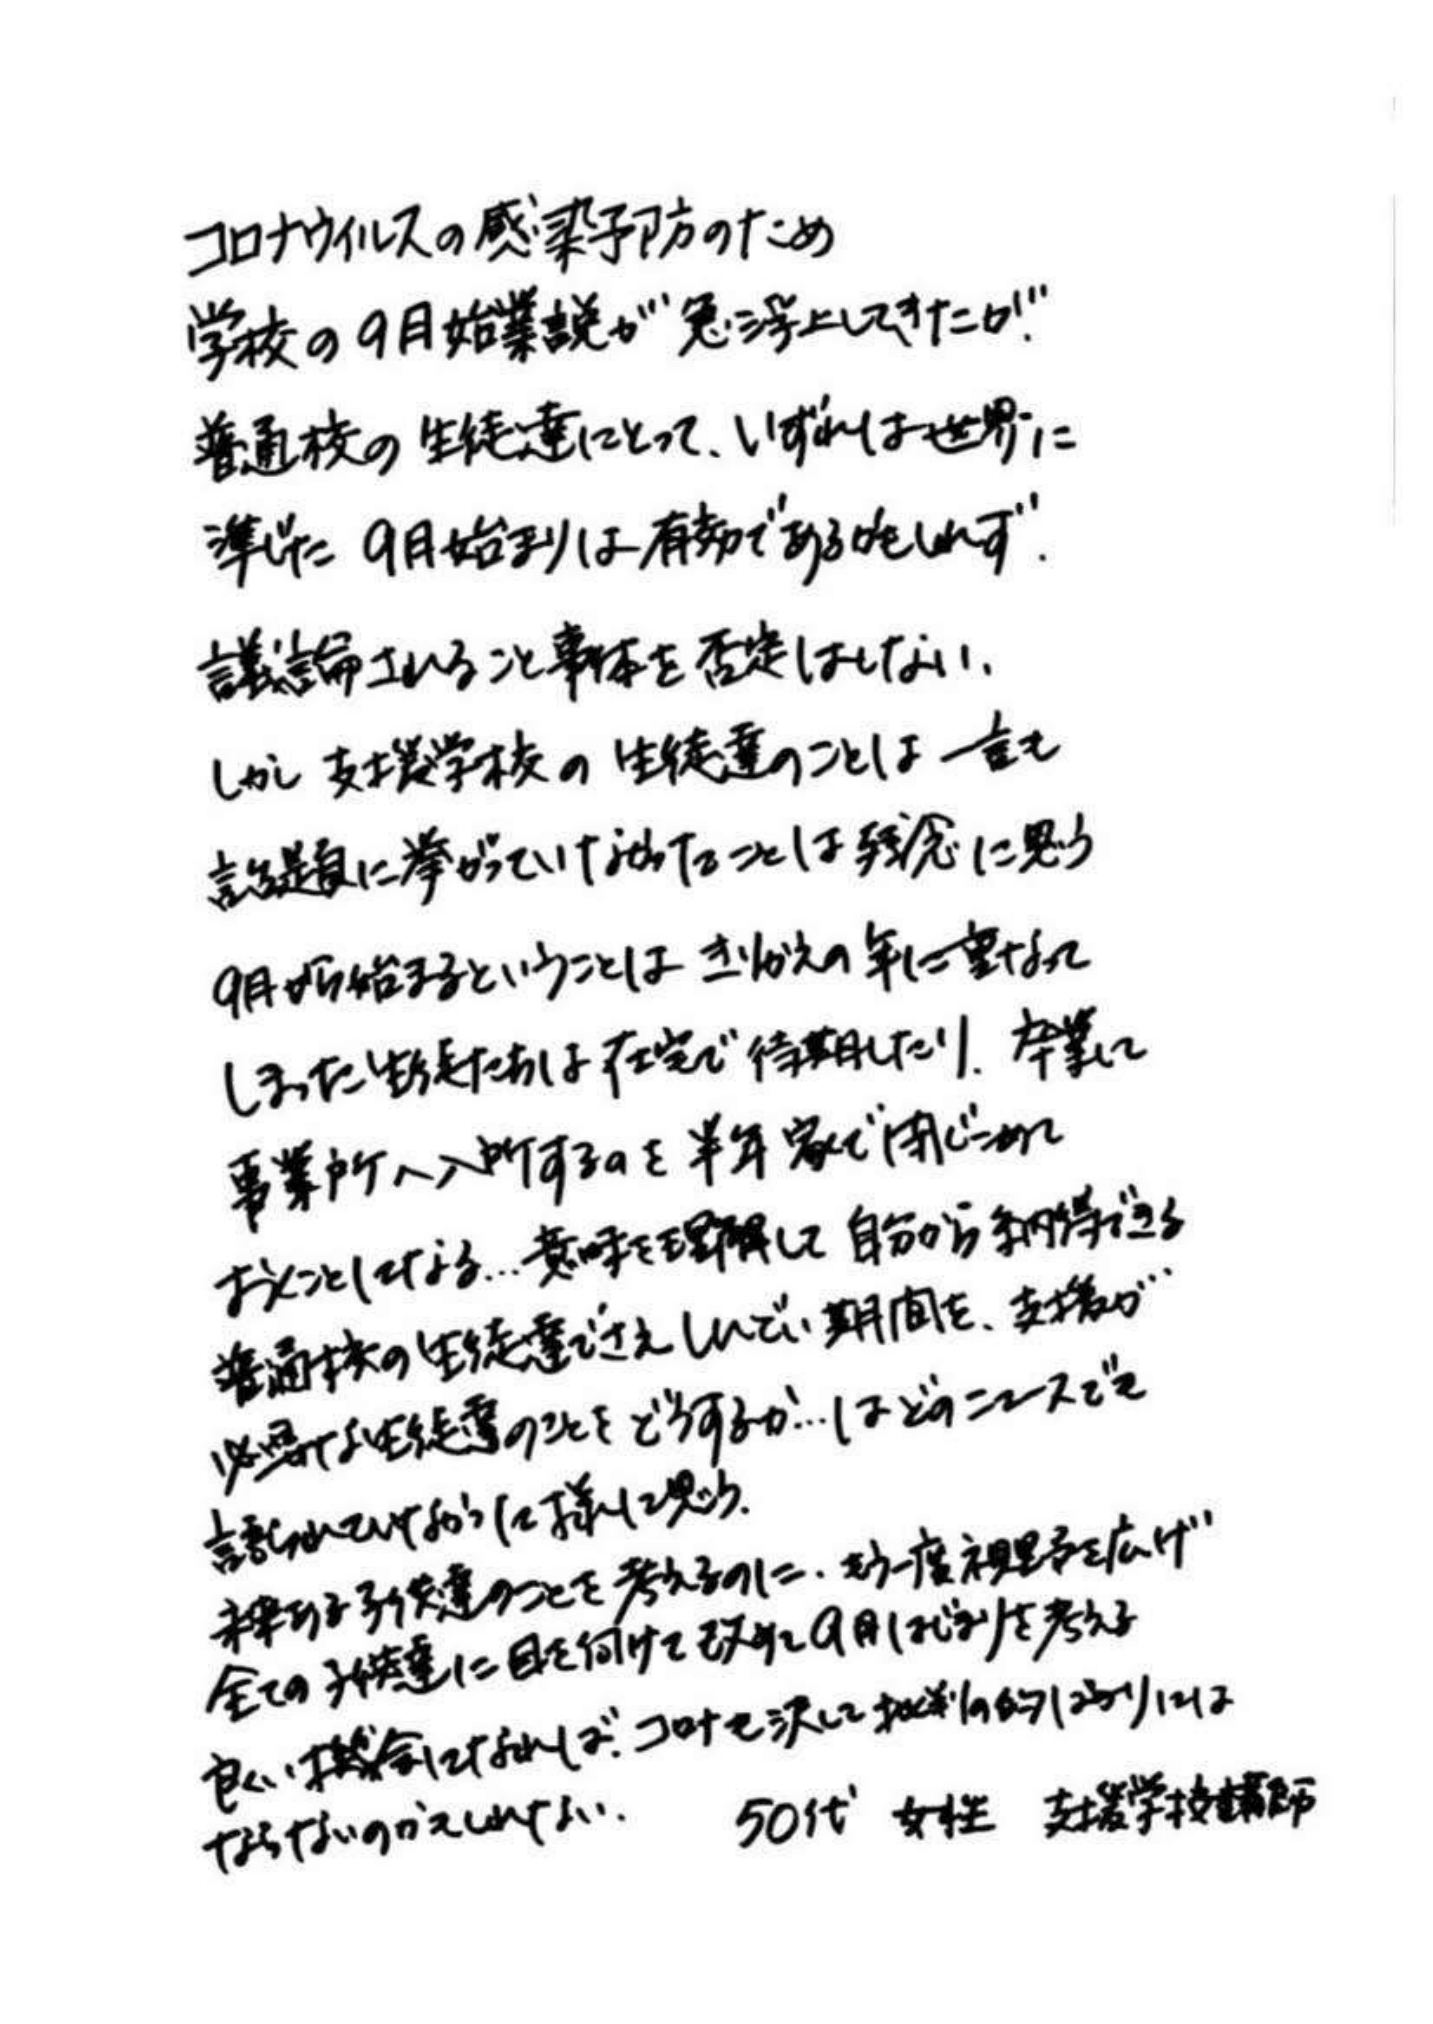 コロナウイルスの感染予防のため
学校の9月始業説が急浮上してきたが、
普通校の生徒達にとって、いずれは世界に
準じた9月始まりは有効であるかもしれず、
議論されること事体を否定はしない、
しかし 支援学校の 生徒達のことは 一言も
話題に挙がっていなかったことは残念に思う
9月から始まるということは きりかえの年に重なって
しまった生徒たちは在宅で待期したり、卒業して
事業所へ入所するのを 半年 家で閉じこめて
おくことしになる…意味を理解して 自分から納得できる
普通校の生徒達でさえしんどい期間を、支援が
必要な生徒達のことをどうするか…はどのニュースでも
語られていなかった様に思う.
未来ある子供達のことを考えるのに、もう一度視野を広げ
全ての子供達に目を向けて改めて9月はじまりを考える
良い機会になれば、コロナも決して批判的ばかりには
ならないのかもしれない. 50代 女性 支援学校講師